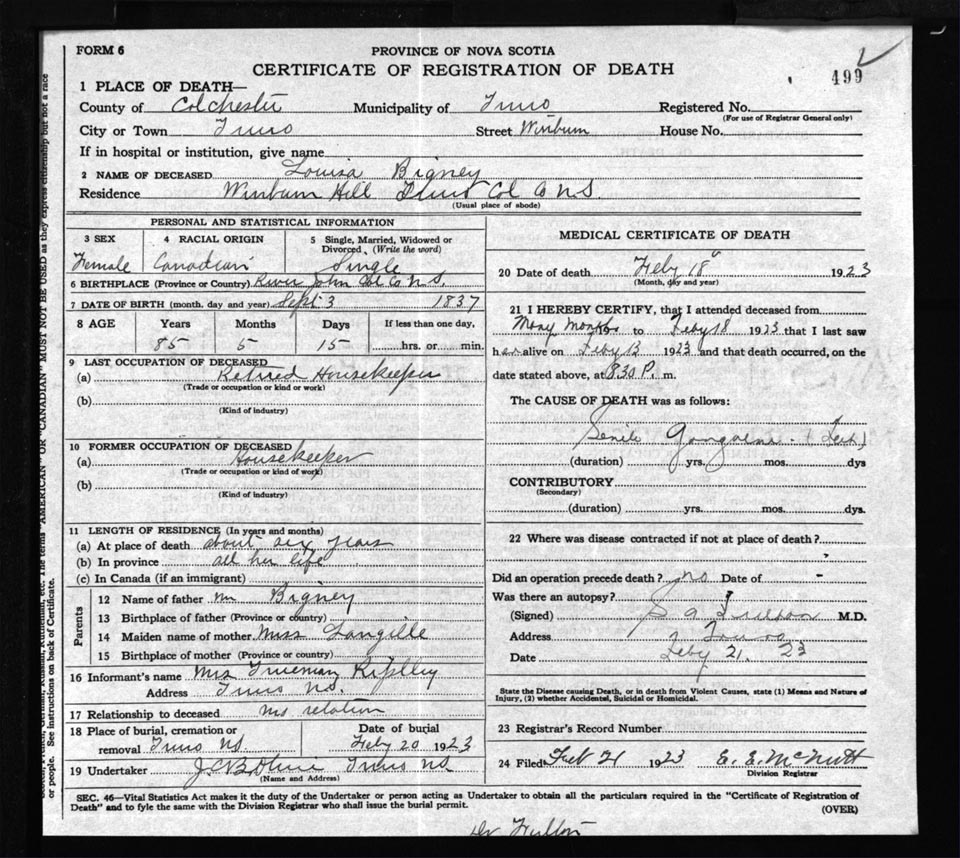 FORM 6
PROVINCE OF NOVA SCOTIA
CERTIFICATE OF REGISTRATION OF DEATH
499
1 PLACE OF DEATH—
County of Colchester Municipality of Truro Registered No.
(For use of Registrar General only)
City or Town Truro Street Winburn House No.
If in hospital or institution, give name
2 NAME OF DECEASED Louisa Bigney
Residence Winburn Hill Truro Col Co NS
(Usual place of abode)
PERSONAL AND STATISTICAL INFORMATION
3 SEX
Female
4 RACIAL ORIGIN
Canadian
5 Single, Married, Widowed or Divorced (Write the word)
Single
6 BIRTHPLACE (Province or Country) River John Col Co N.S.
7 DATE OF BIRTH (month, day and year) Sept 3 1837
8 AGE Years Months Days If less than one day,
85 5 15 hrs. or min.
9 LAST OCCUPATION OF DECEASED
(a) Retired Housekeeper
(Trade or occupation or kind or work)
(b)
(Kind of industry)
10 FORMER OCCUPATION OF DECEASED
(a) Housekeeper
(Trade or occupation or kind of work)
(b)
(Kind of industry)
11 LENGTH OF RESIDENCE (In years and months)
(a) At place of death about six years
(b) In province all her life
(c) In Canada (if an immigrant)
Parents
12 Name of father Mr Bigney
13 Birthplace of father (Province or country)
14 Maiden name of mother Miss Langille
15 Birthplace of mother (Province or country)
16 Informant's name Mrs Trueman
Address Truro NS.
17 Relationship to deceased no relation
18 Place of burial, cremation or removal Truro NS. Date of burial Feby 20 1923
19 Undertaker Truro NS
(Name and Address)
MEDICAL CERTIFICATE OF DEATH
20 Date of death Feby 18 1923
(Month, day and year)
21 I HEREBY CERTIFY, that I attended deceased from
Many Months 19 to Feby 18 1923 that I last saw
her alive on Feby 13 1923 and that death occurred, on the
date stated above, at 8.30 P. m.
The CAUSE OF DEATH was as follows:
Senile Gangrene
(duration) yrs. mos. dys
CONTRIBUTORY
(Secondary)
(duration) yrs. mos. dys.
22 Where was disease contracted if not at place of death?
Did an operation precede death? no Date of -
Was there an autopsy?
(Signed) Fulton M.D.
Address Truro
Date Feby 21. 23
State the Disease causing Death, or in death from Violent Causes, state (1) Means and Nature of
Injury, (2) whether Accidental, Suicidal or Homicidal.
23 Registrar's Record Number
24 Filed Feb 21 1923 E. E. McNutt
Division Registrar
SEC. 46—Vital Statistics Act makes it duty of the Undertaker or person acting as Undertaker to obtain all the particulars required in the "Certificate of Registration of
Death" and to fyle the same with the Division Registrar who shall issue the burial permit.
(OVER)
Dr Fulton